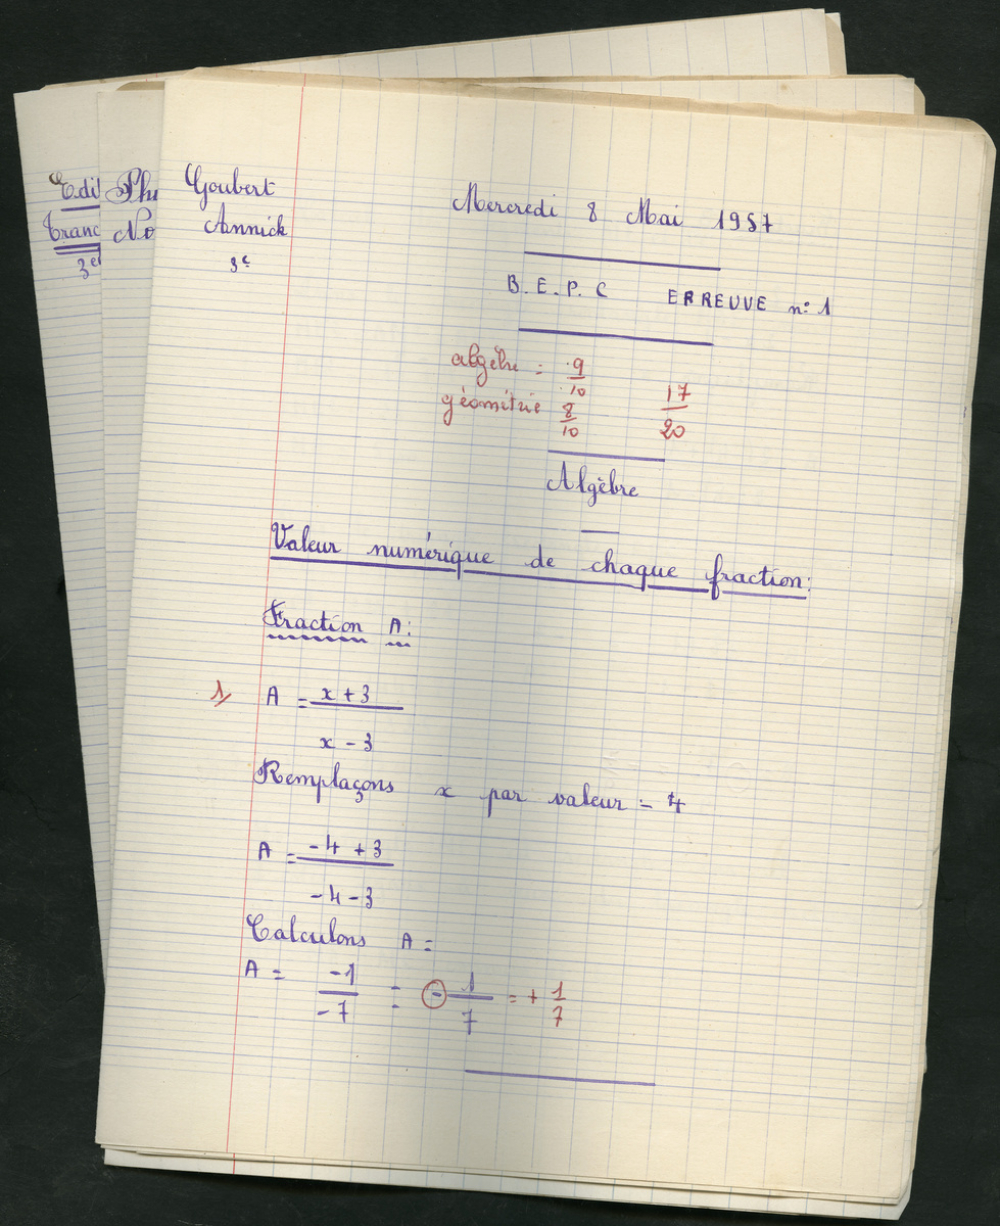 Edi
Franc
3e
Pho
No
Goubert
Annick
3e
Mercredi 8 Mai 1957
B.E.P.C ERREUVE n: 1
algèbre = 9/10
géométrie 8/10
17/20
Algèbre
Valeur numérique de chaque fraction:
Fraction A:
1/ A = x + 3
x - 3
Remplaçons x par valeur - 4
A = -4 + 3
-4 - 3
Calculons A =
A = -1/-7 = - 1/7 = + 1/7